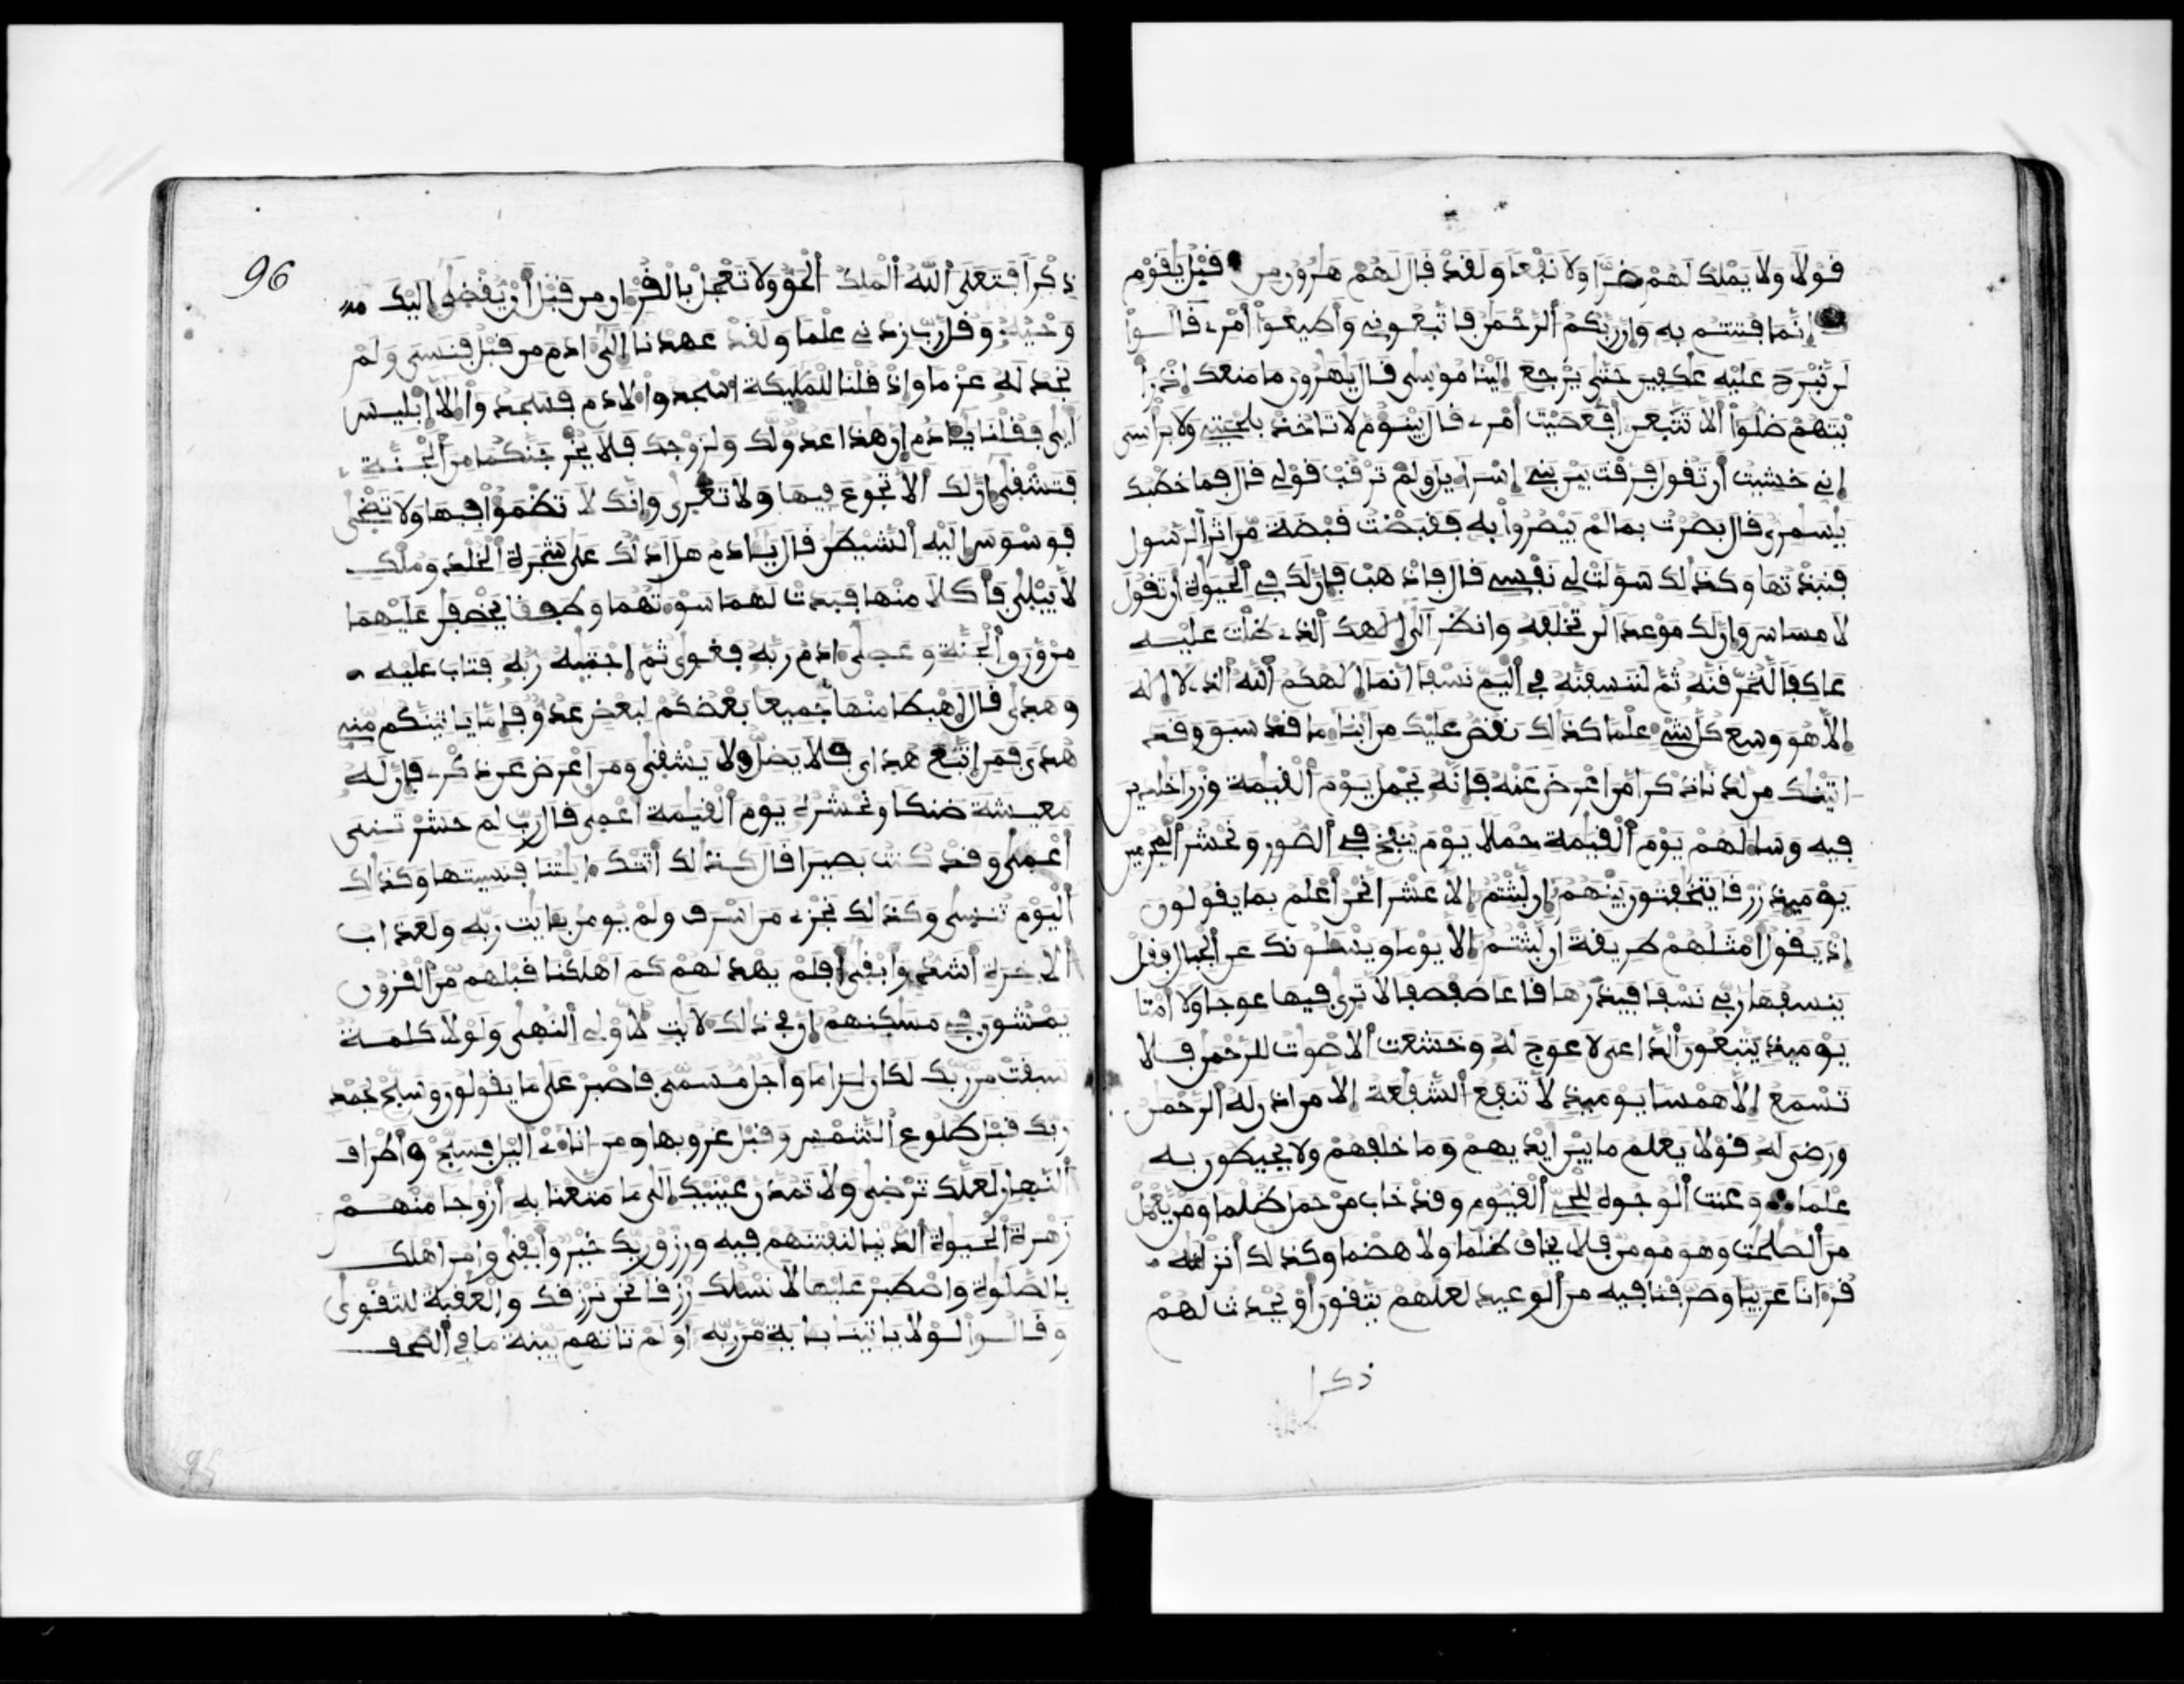 فولا ولا يملك لهم ضرا ولا نفعا ولقد فال لهم هرون من فبل يفوم
إنما فتنتم به وإن ربكم ألرحمن فاتبعونے وأطيعوا أمرے فالــوا
لن نبرح عليه عكفين حتى يرجع إلينا موسى فال يهرون ما منعك إذ را
يتهم ضلوا ألا تتبعن أفعصيت أمرے فال يبنوم لا تاخذ بلحيتے ولا برأسى
إنے خشيت أن تفول فرفت بين بنے إسراءيل ولم ترفب فولے فال فما خطبك
يسمرى فال بصرت بما لم يبصروا به ففبضت فبضة من اثر ألرسول
فنبذتها وكذلك سولت لے نفسے فال فاذهب فإن لك فے ألحيوة أن تفول
لا مساس وإن لك موعدا لن تخلفه وانظر الى إلهك ألذے ظلت عليــه
عاكفا لنحرفنه ثم لننسفنه فے أليم نسفا انما إلهكم ألله ألذے لا إله
إلا هو وسع كل شےء علما كذلك نفص عليك من انباء ما فد سبق وفد
اتينك من لدنا ذكرا من اعرض عنه فإنه يحمل يوم ألفيمة وزرا خلدين
فيه وساء لهم يوم ألفيمة حملا يوم ينفخ فے ألصور ونحشر ألمجرمين
يوميذ زرفا يتخفتون بينهم إن لبثتم إلا عشرا نحن أعلم بما يفولون
إذ يفول أمثلهم طريفة إن لبثتم إلا يوما ويسلونك عن ألجبال ففل
ينسفها ربے نسفا فيذرها فاعا صفصفا لا ترى فيها عوجا ولا أمتا
يوميذ يتبعون ألداعى لا عوج له وخشعت ألاصوت للرحمن فــلا
تسمع إلا همسا يوميذ لا تنفع ألشفعة إلا من اذن له ألرحمن
ورضى له فولا يعلم ما بين أيديهم وما خلفهم ولا يحيطون بــه
علما وعنت ألوجوه للحى ألفيوم وفد خاب من حمل ظلما ومن يعمل
من ألصلحت وهو مومن فلا يخاف ظلما ولا هضما وكذلك أنزلنه
فرءانا عربيا وصرفنا فيه من ألوعيد لعلهم يتفون أو يحدث لهم
ذكرا
96
ذكرا فتعلى ألله ألملك ألحق ولا تعجل بالفرءان من فبل أن يفضى إليك
وحيه وفل رب زدنے علما ولفد عهدنا إلى ءادم من فبل فنسى ولم
نجد له عزما وإذ فلنا للمليكة اسجدوا لادم فسجدوا إلا إبليــس
أبى ففلنا يــادم إن هذا عدو لك ولزوجك فلا يخرجنكما من ألجنــة
فتشفى إن لك ألا تجوع فيها ولا تعرى وإنك لا تظمؤا فيها ولا تضحى
فوسوس إليه ألشيطن فال يــادم هل ادلك على شجرة ألخلد وملك
لا يبلى فأكلا منها فبدت لهما سوءتهما وطففا يخصفن عليهما
من ورق ألجنة وعصى ءادم ربه فغوى ثم اجتبيه ربه فتاب عليه
وهدى فال اهبطا منها جميعا بعضكم لبعض عدو فإما ياتينكم منے
هدى فمن اتبع هداى فلا يضل ولا يشفى ومن اعرض عن ذكرے فإن له
معيشة ضنكا ونحشره يوم ألفيمة اعمى فال رب لم حشرتــنے
أعمى وفد كنت بصيرا فال كــذلك أتتك ءايتنا فنسيتها وكذلك
أليوم تنسى وكذلك نجزے من اسرف ولم يومن بــايت ربه ولعذاب
ألاخرة أشد وأبفى أفلم يهد لهم كم اهلكنا فبلهم من ألفرون
يمشون فے مسكنهم إن فے ذلك لايت لأولے ألنهى ولولا كلمــة
سبفت من ربك لكان لزاما وأجل مسمى فاصبر على ما يفولون وسبح بحمد
ربك فبل طلوع ألشمس وفبل غروبها ومن اناءے اليل فسبح وأطراف
ألنهار لعلك ترضى ولا تمدن عينيك إلى ما متعنا به أزوجا منهــم
زهرة ألحيوة ألدنيا لنفتنهم فيه ورزق ربك خير وأبفى وامر اهلك
بالصلوة واصطبر عليها لا نسلك رزفا نحن نرزفك والعفبة للتفوى
وفالــوا لــولا ياتينا بــاية من ربه أولم تاتهم بينة ما فے ألصحف